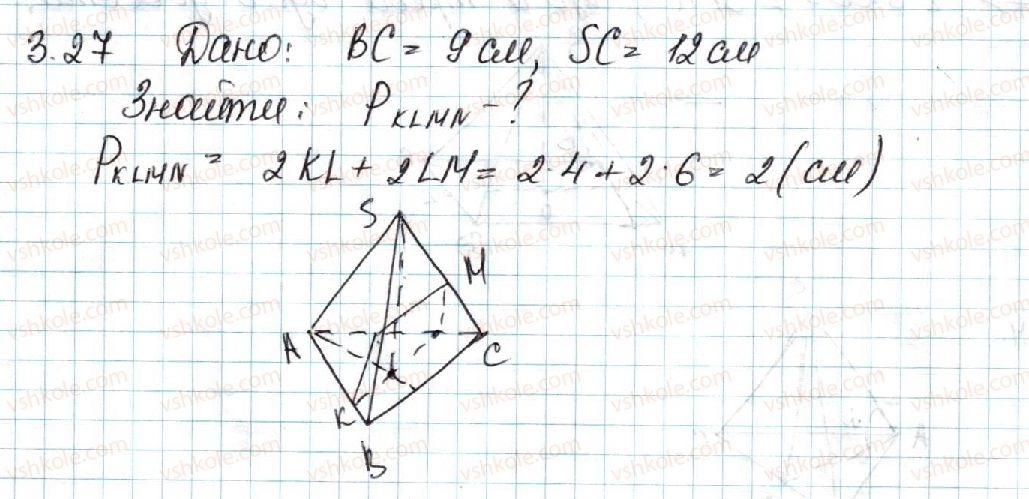 3.27 Дано: BC = 9 см, SC = 12 см
Знайти: P_KLMN - ?
P_KLMN = 2KL + 2LM = 2·4 + 2·6 = 2 (см)
S
M
A
C
L
K
B